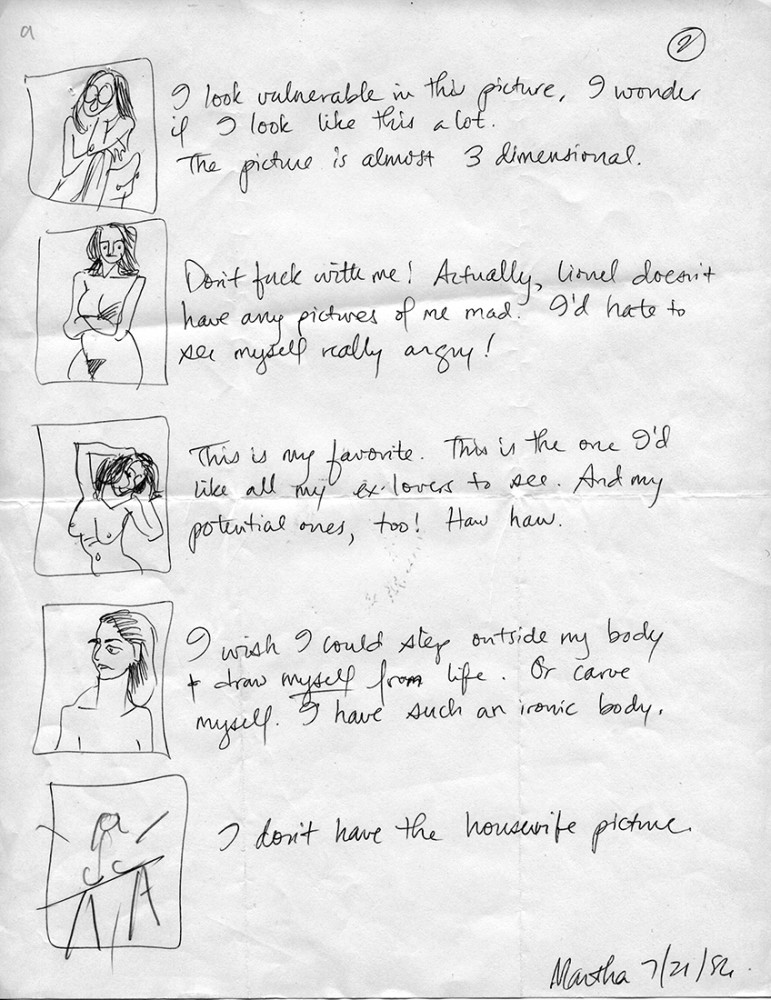 a
2
I look vulnerable in this picture, I wonder
if I look like this a lot.
The picture is almost 3 dimensional.
Don't fuck with me! Actually, Lionel doesn't
have any pictures of me mad. I'd hate to
see myself really angry!
This is my favorite. This is the one I'd
like all my ex-lovers to see. And my
potential ones, too! Haw haw.
I wish I could step outside my body
+ draw myself from life. Or carve
myself. I have such an ironic body.
I don't have the housewife picture.
Martha 7/21/82.